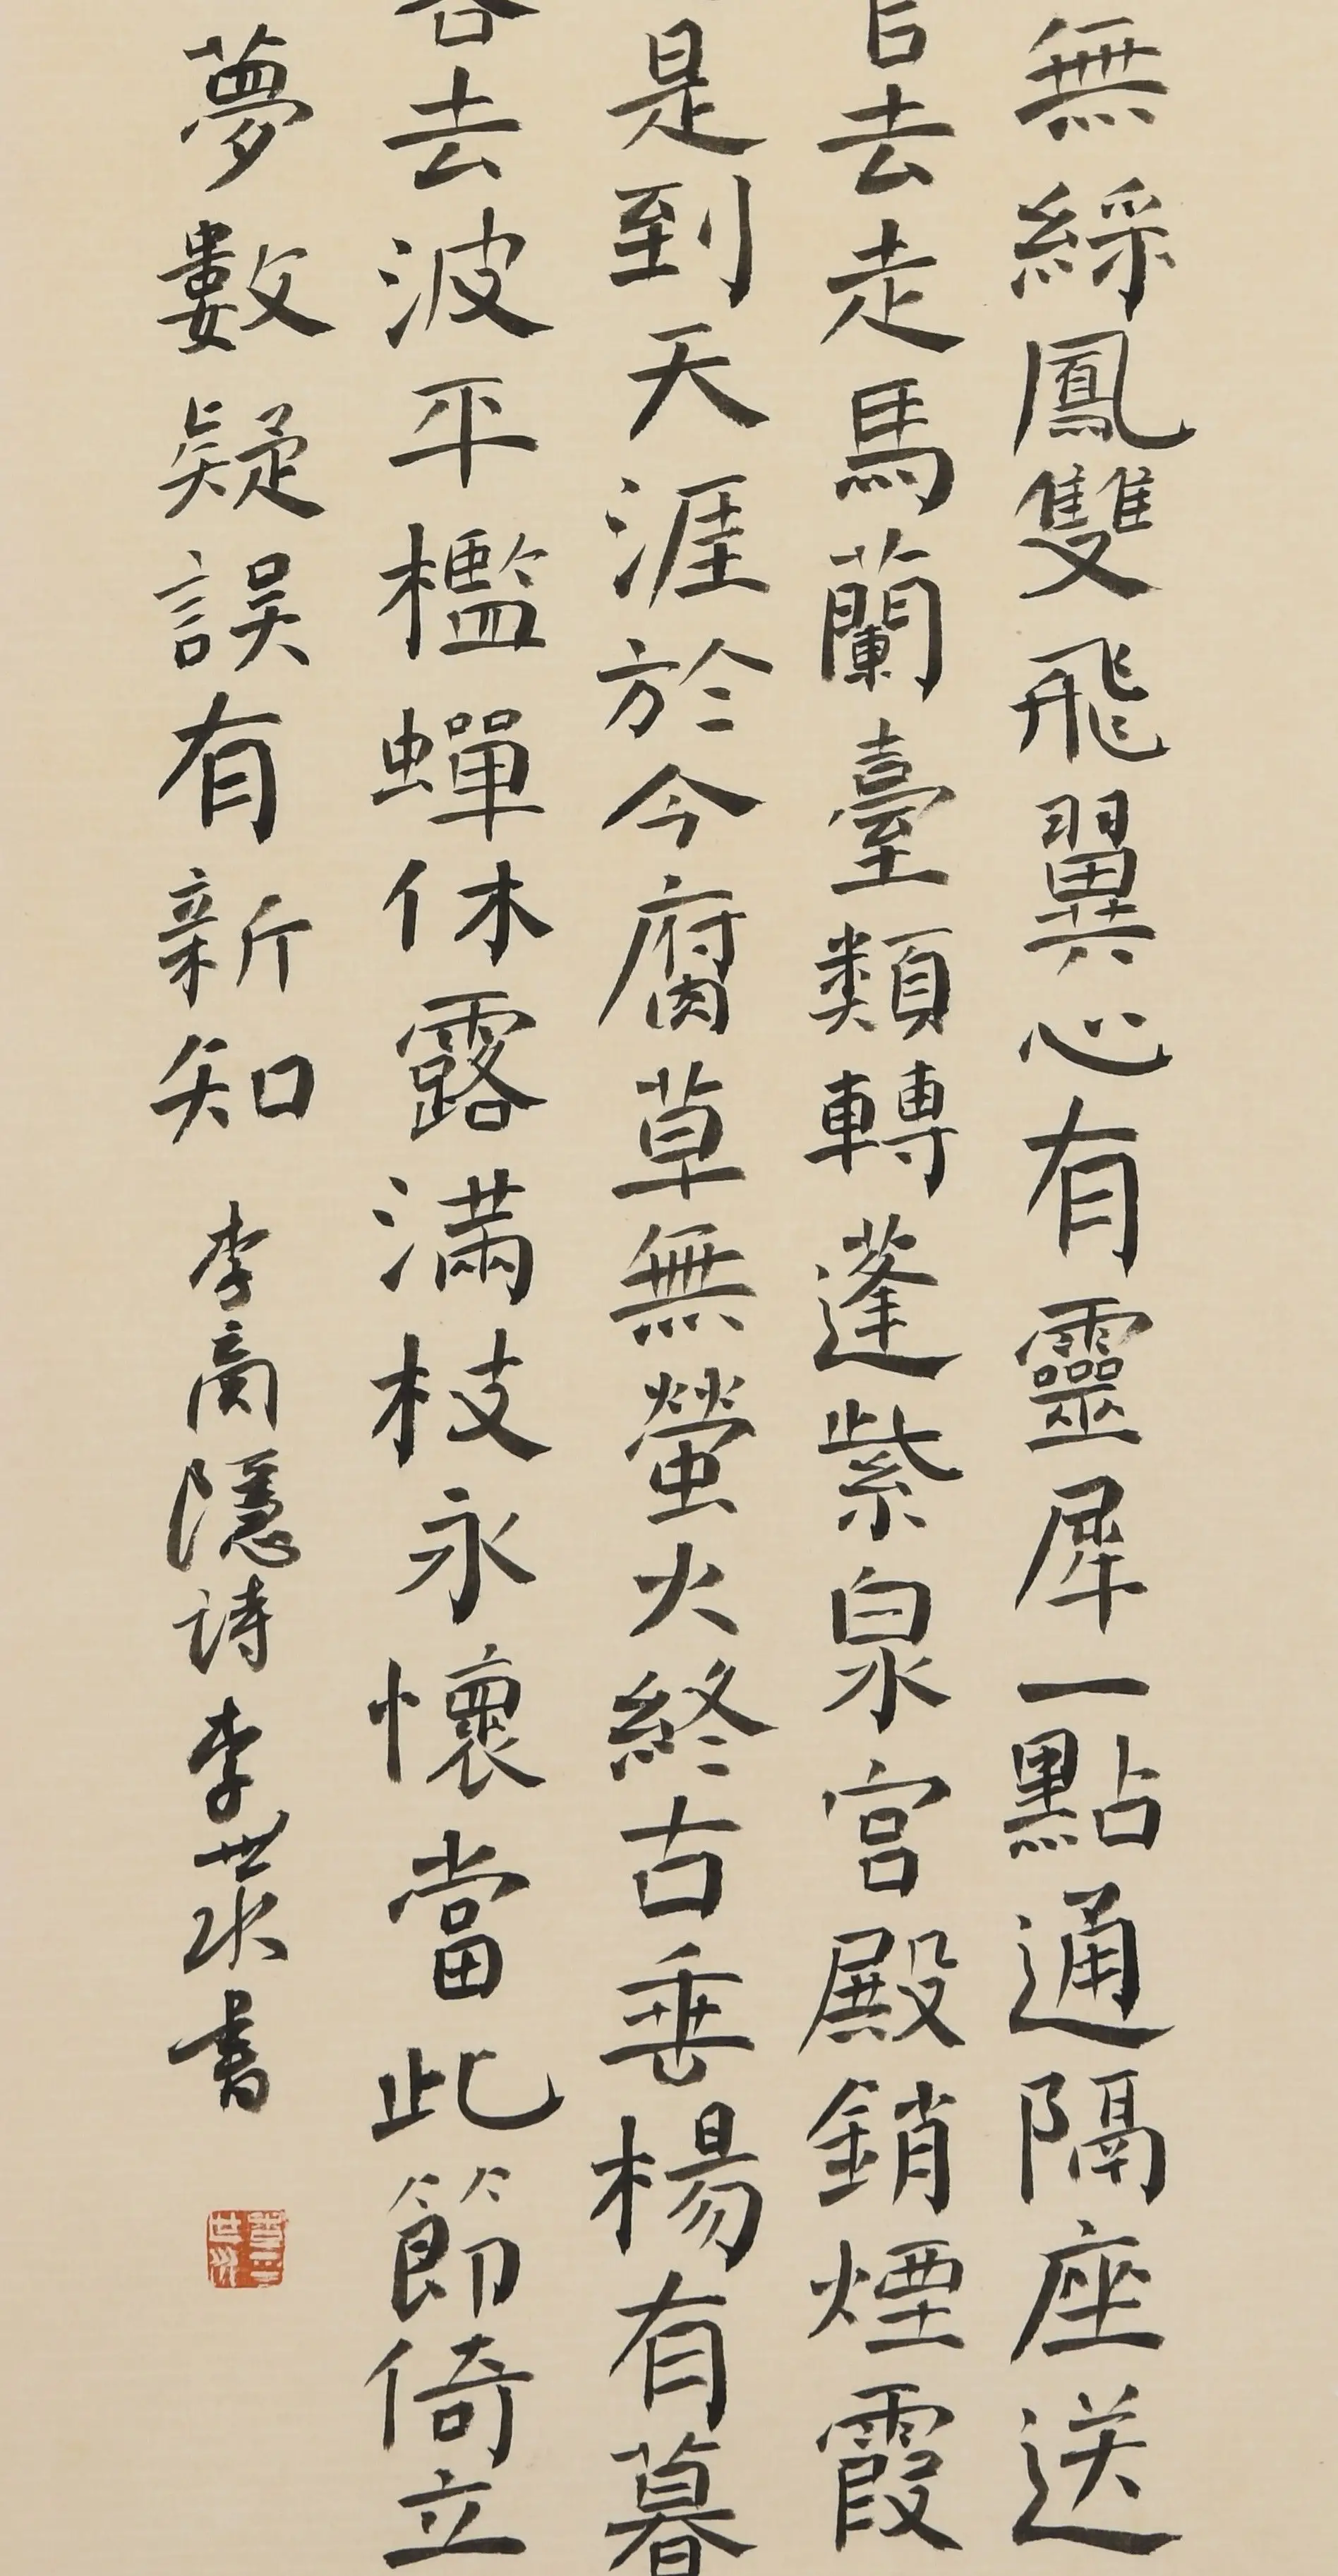 無綵鳳雙飛翼心有靈犀一點通隔座送
去走馬蘭臺類轉蓬紫泉宮殿銷煙霞
是到天涯於今腐草無螢火終古垂楊有暮
去波平檻蟬休露滿枝永懷當此節倚立
夢數疑誤有新知 李商隱詩 李世 書